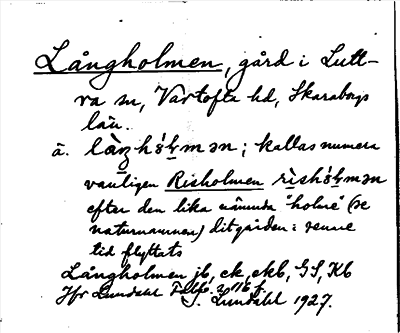 Långholmen, gård i Lutt-
ra sn, Vartofta hd, Skarabogs
län.
ä. làŋhɷ́ɫmən; kallas numera
vanligen Risholmen rìshɷ́ɫmən
efter den lika nämnda "holme" (se
naturnamnen) dit gården i senare
tid flyttats
Långholmen jb, ek, ekb, GS, Kb
Jfr Lundahl Falbp. s. f.
Lundahl 1927.